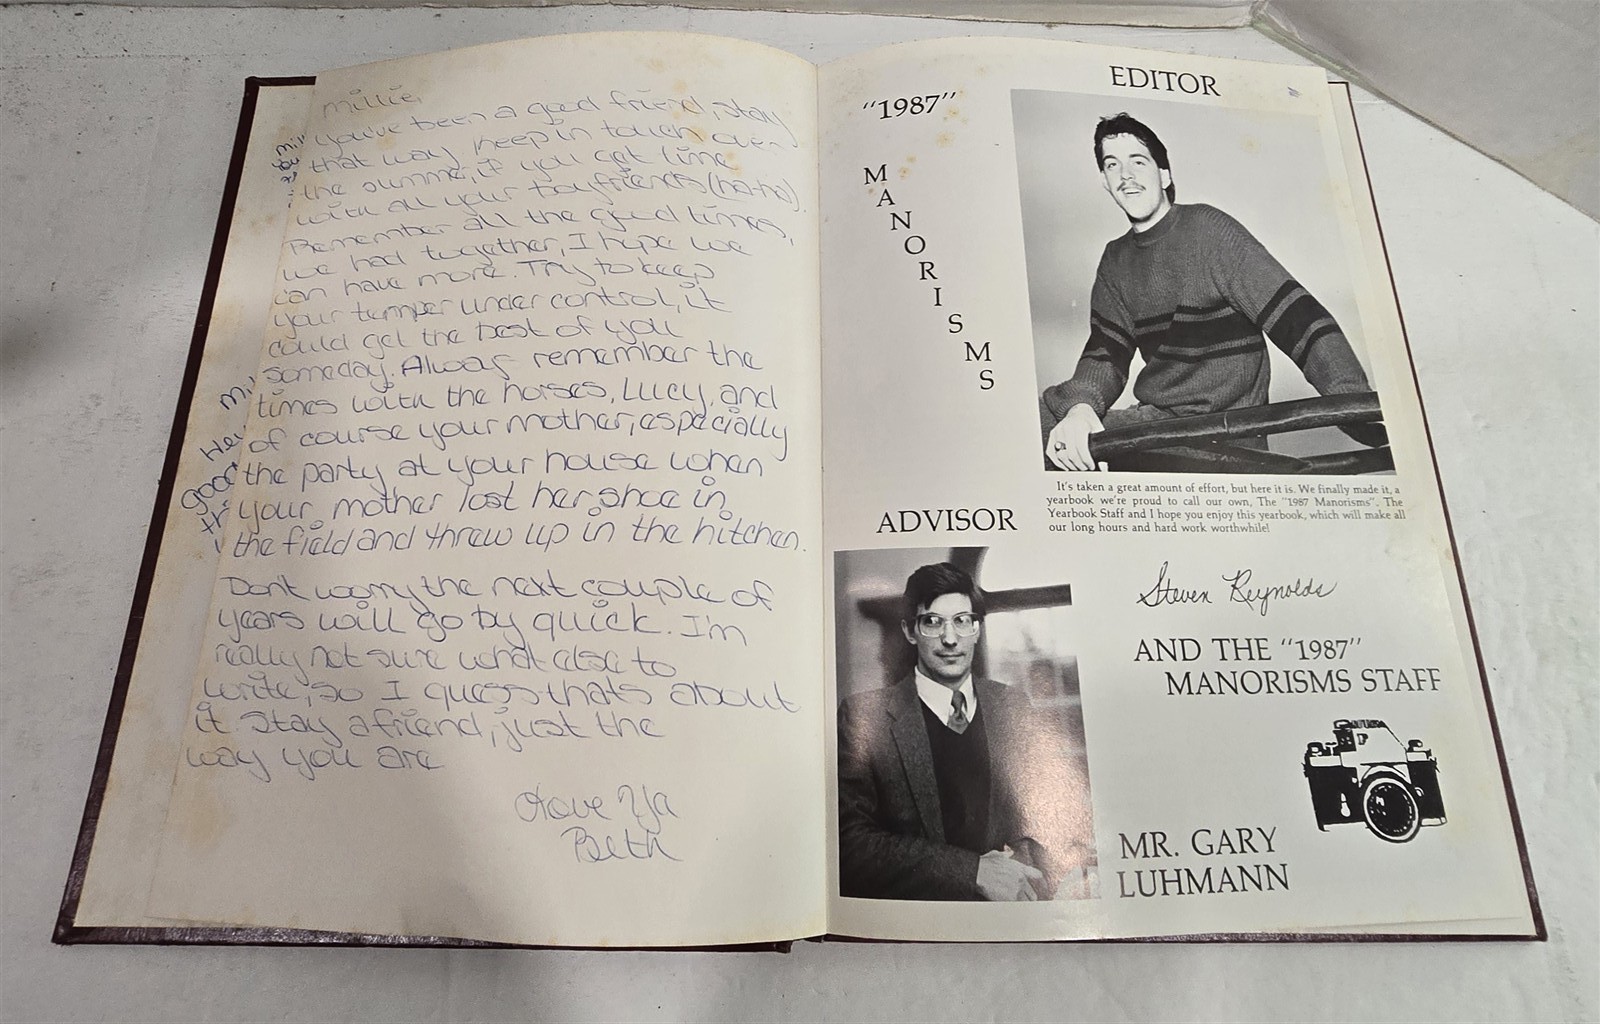 Millie,
you've been a good friend, stay
that way, keep in touch over
the summe, if you get time
with all your boyfriends (ha-ha).
Remember all the good times,
we had together, I hope we
can have more. Try to keep
your temper under control, it
could get the best of you
someday. Always remember the
times with the horses, Lucy, and
of course your mother, especially
the party at your house when
your mother lost her shoe in
the field and threw up in the kitchen.
Don't worry the next couple of
years will go by quick. I'm
really not sure what else to
write, so I guess thats about
it stay a friend, just the
way you are
Love Ya
Beth
Hey
good
"1987"
MANORISMS
EDITOR
It's taken a great amount of effort, but here it is. We finally made it, a
yearbook we're proud to call our own, The "1987 Manorisms". The
Yearbook Staff and I hope you enjoy this yearbook, which will make all
our long hours and hard work worthwhile!
ADVISOR
Steven Reynolds
AND THE "1987"
MANORISMS STAFF
MR. GARY
LUHMANN